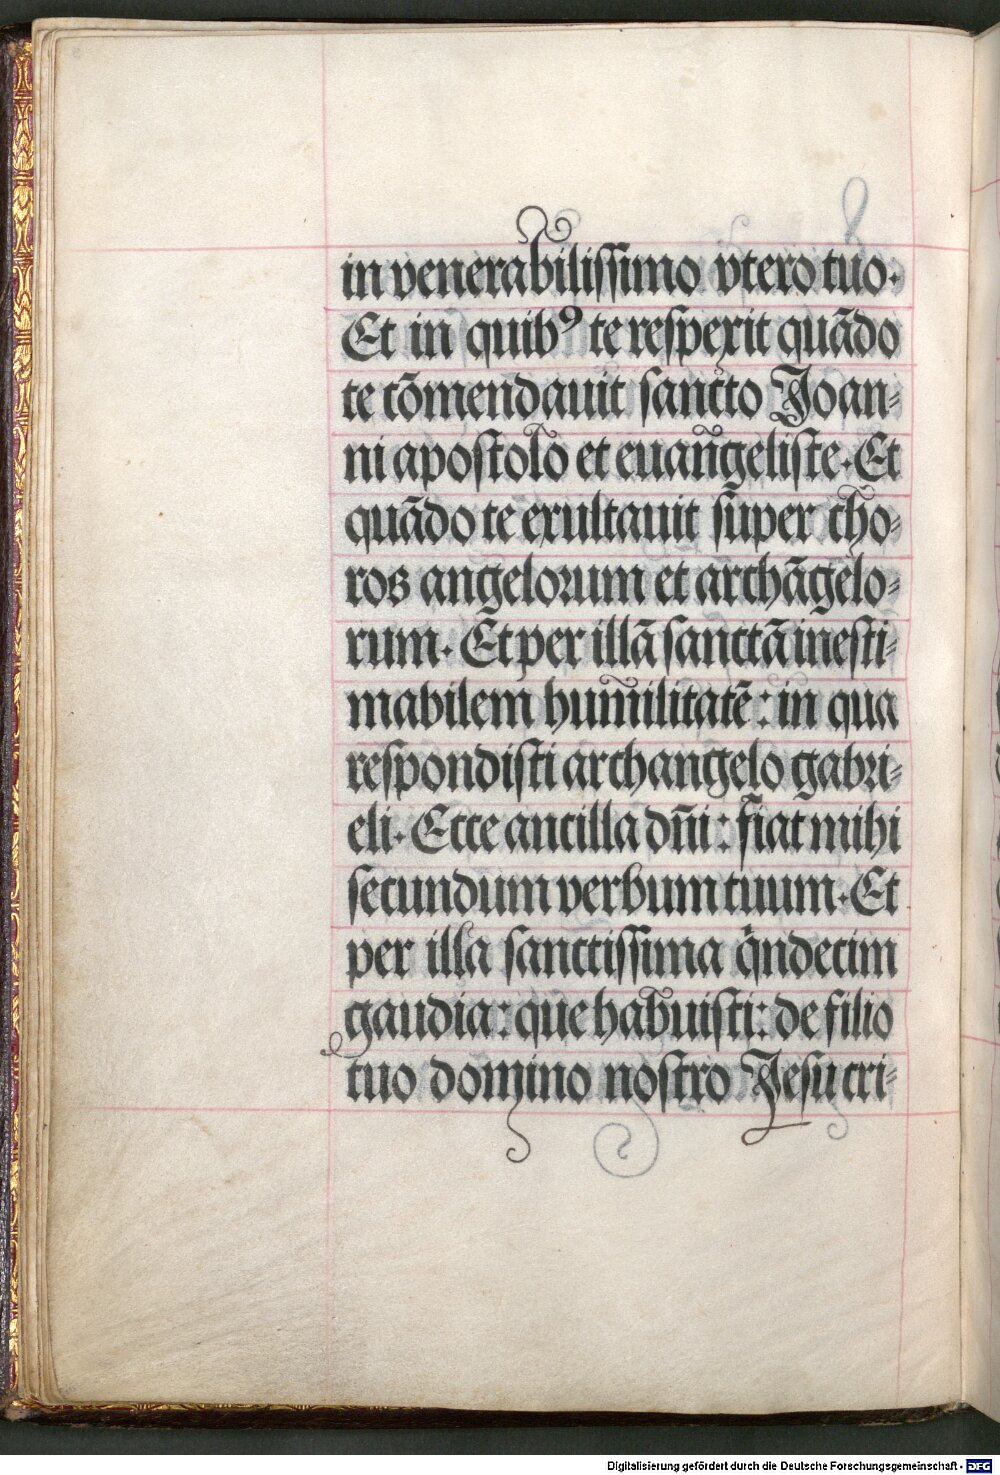 in venerabilissimo vtero tuo.
Et in quibꝰ te respexit quãdo
te cõmendauit sancto Joan-
ni apostolo et euangeliste. Et
quãdo te exultauit super cho-
ros angelorum et archãgelo-
rum. Et per illã sanctã inesti-
mabilem humilitatẽ: in qua
respondisti archangelo gabri-
eli. Ecce ancilla dñi: fiat mihi
secundum verbum tuum. Et
per illa sanctissima q̃ndecim
gaudia: que habuisti: de filio
tuo domino nostro Jesu cri-
Digitalisierung gefördert durch die Deutsche Forschungsgemeinschaft - DFG